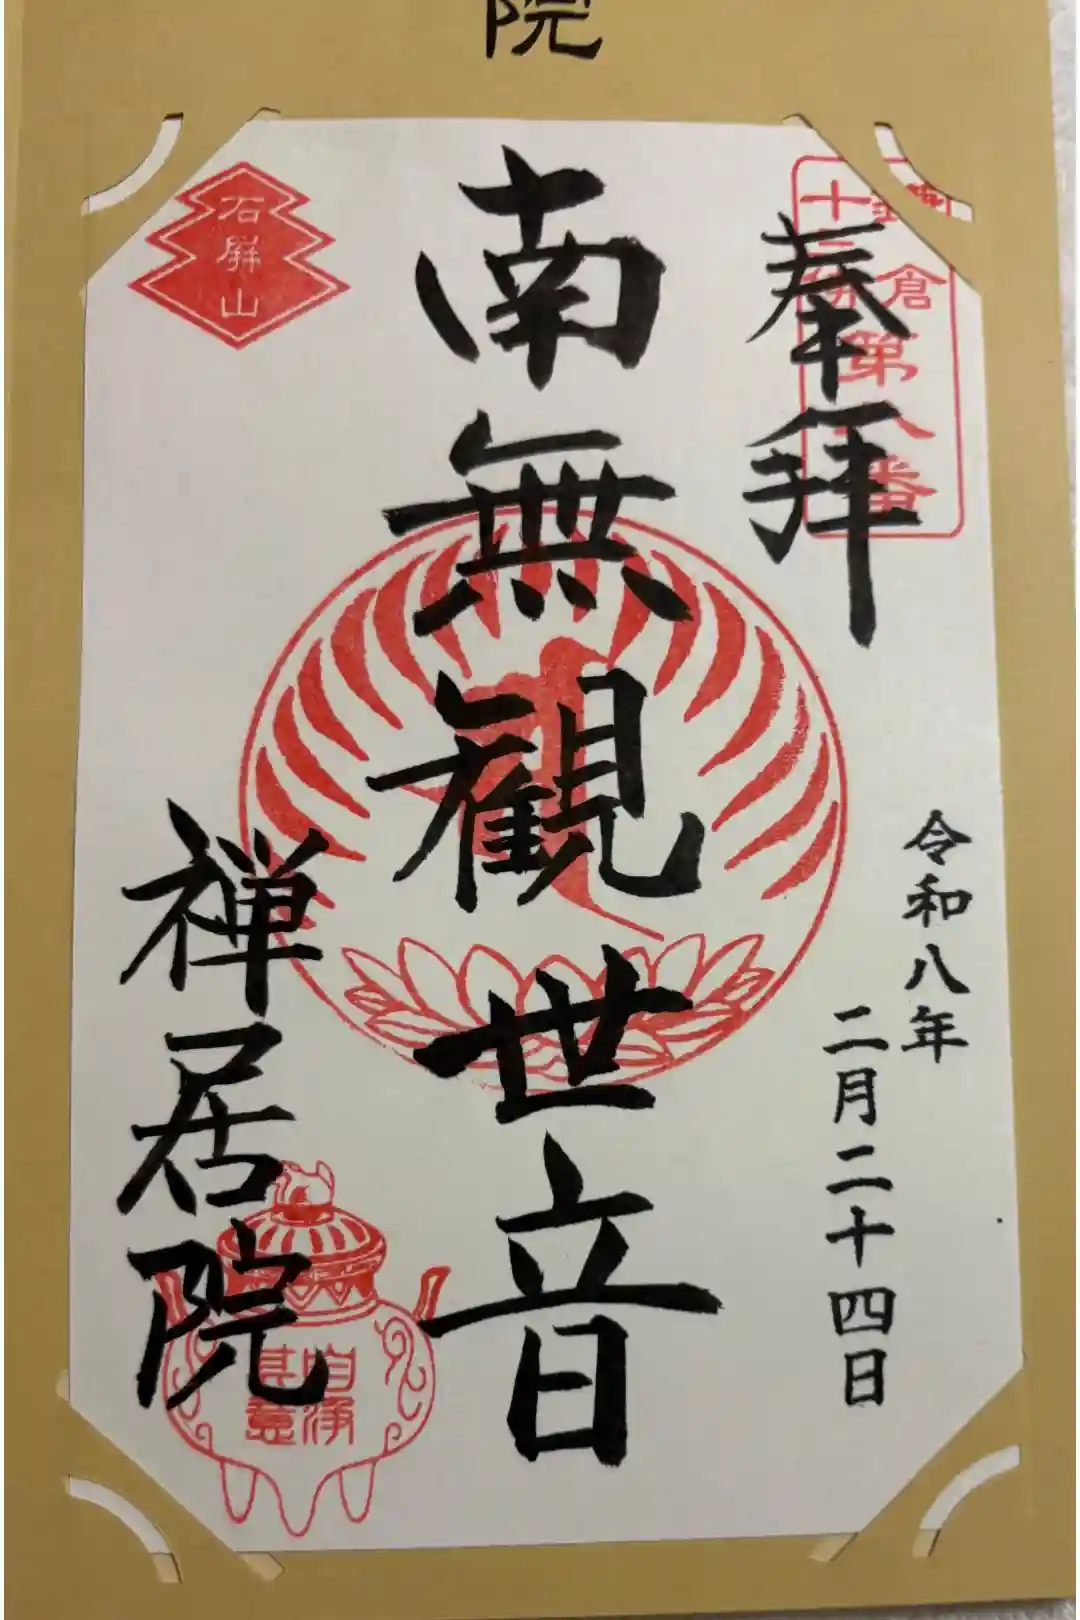 院
鎌倉
十三仏
第八番
奉拝
令和八年
二月二十四日
南無観世音
石屏山
禅居院
自浄
其意